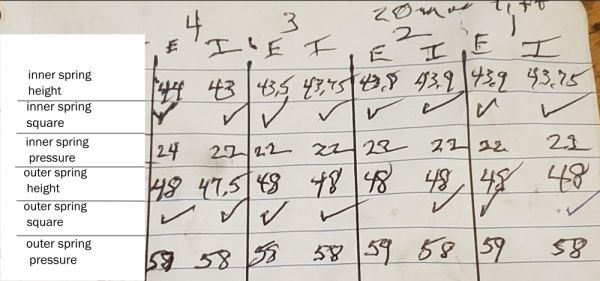 4 3 2 1
E I E I E I E I
inner spring height 44 43 43,5 43,75 43,9 43,9 43,75
inner spring square ✓ ✓ ✓ ✓ ✓ ✓ ✓ ✓
inner spring pressure 24 22 22 22 22 22 22 22
outer spring height 48 47,5 48 48 48 48 48 48
outer spring square ✓ ✓ ✓ ✓ ✓ ✓ ✓
outer spring pressure 58 58 58 59 58 59 58